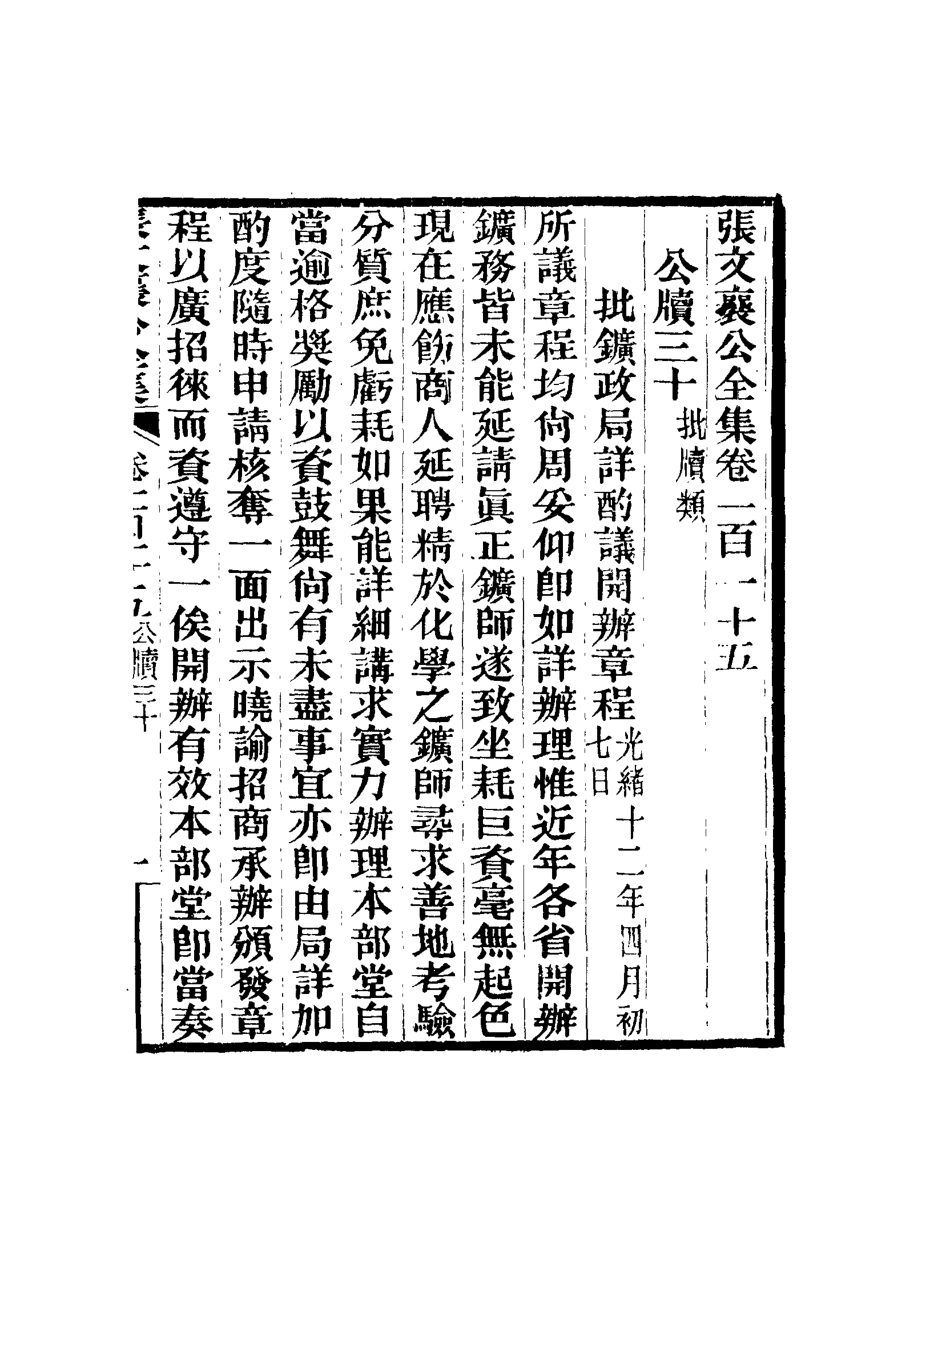 張文襄公全集卷一百一十五
公牘三十 批牘類
批鑛政局詳酌議開辦章程 光緒十二年四月初七日
所議章程均尙周妥仰卽如詳辦理惟近年各省開辦
鑛務皆未能延請眞正鑛師遂致坐耗巨資毫無起色
現在應飭商人延聘精於化學之鑛師尋求善地考驗
分質庶免虧耗如果能詳細講求實力辦理本部堂自
當逾格奬勵以資鼓舞尙有未盡事宜亦卽由局詳加
酌度隨時申請核奪一面出示曉諭招商承辦頒發章
程以廣招徠而資遵守一俟開辦有效本部堂卽當奏
公牘三十 一